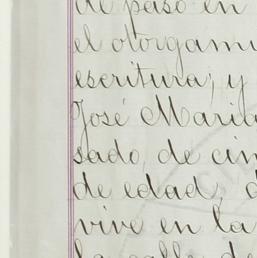 de paso en
el otorgami
escritura; y
José Maria
sado, de cin
de edad, d
vive en la
la calle de